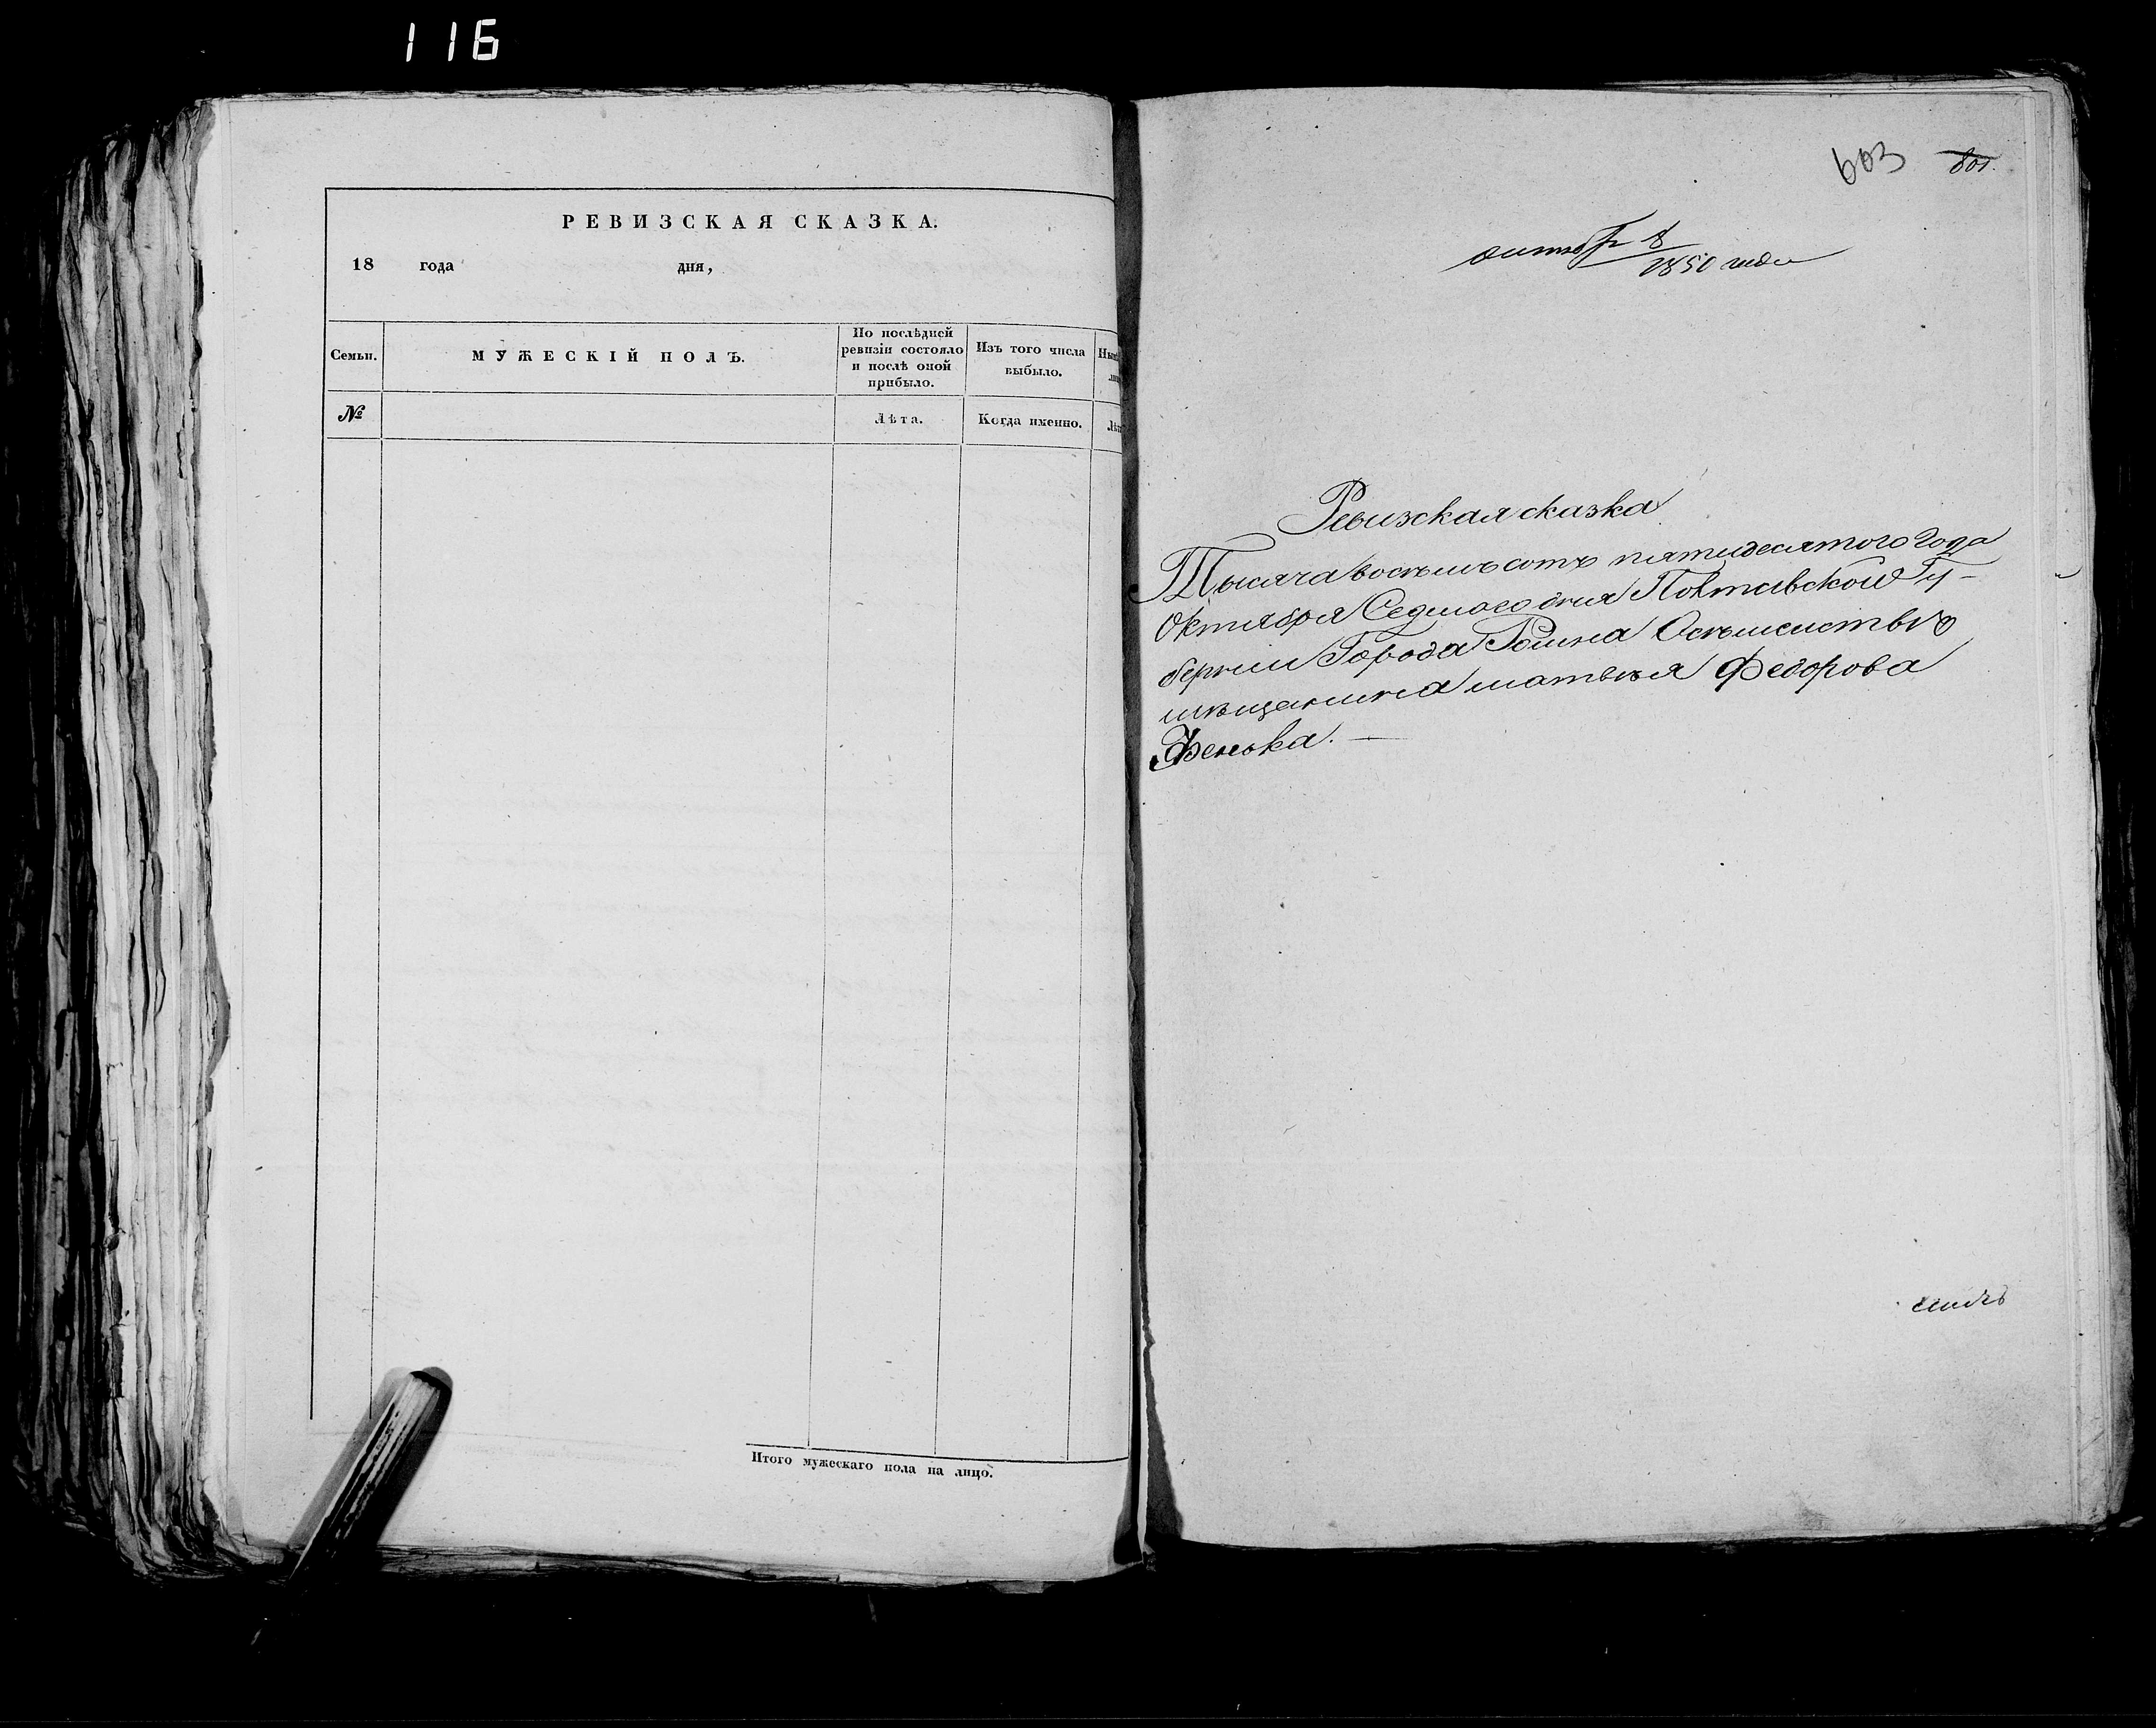 116
РЕВИЗСКАЯ СКАЗКА.
18 года дня,
Семьи.
МУЖЕСКІЙ ПОЛЪ.
По послѣдней ревизіи состояло и послѣ оной прибыло.
Изъ того числа выбыло.
№
Лѣта.
Когда именно.
Итого мужескаго пола на лицо.
603 801.
8
1850 года
Ревизская сказка
Тысяча восемь сотъ пятидесятого года
Октября Седмаго дня Полтавской Гу-
берніи Города Ромна
мѣщанина матвѣя Федорова
Фенька. —